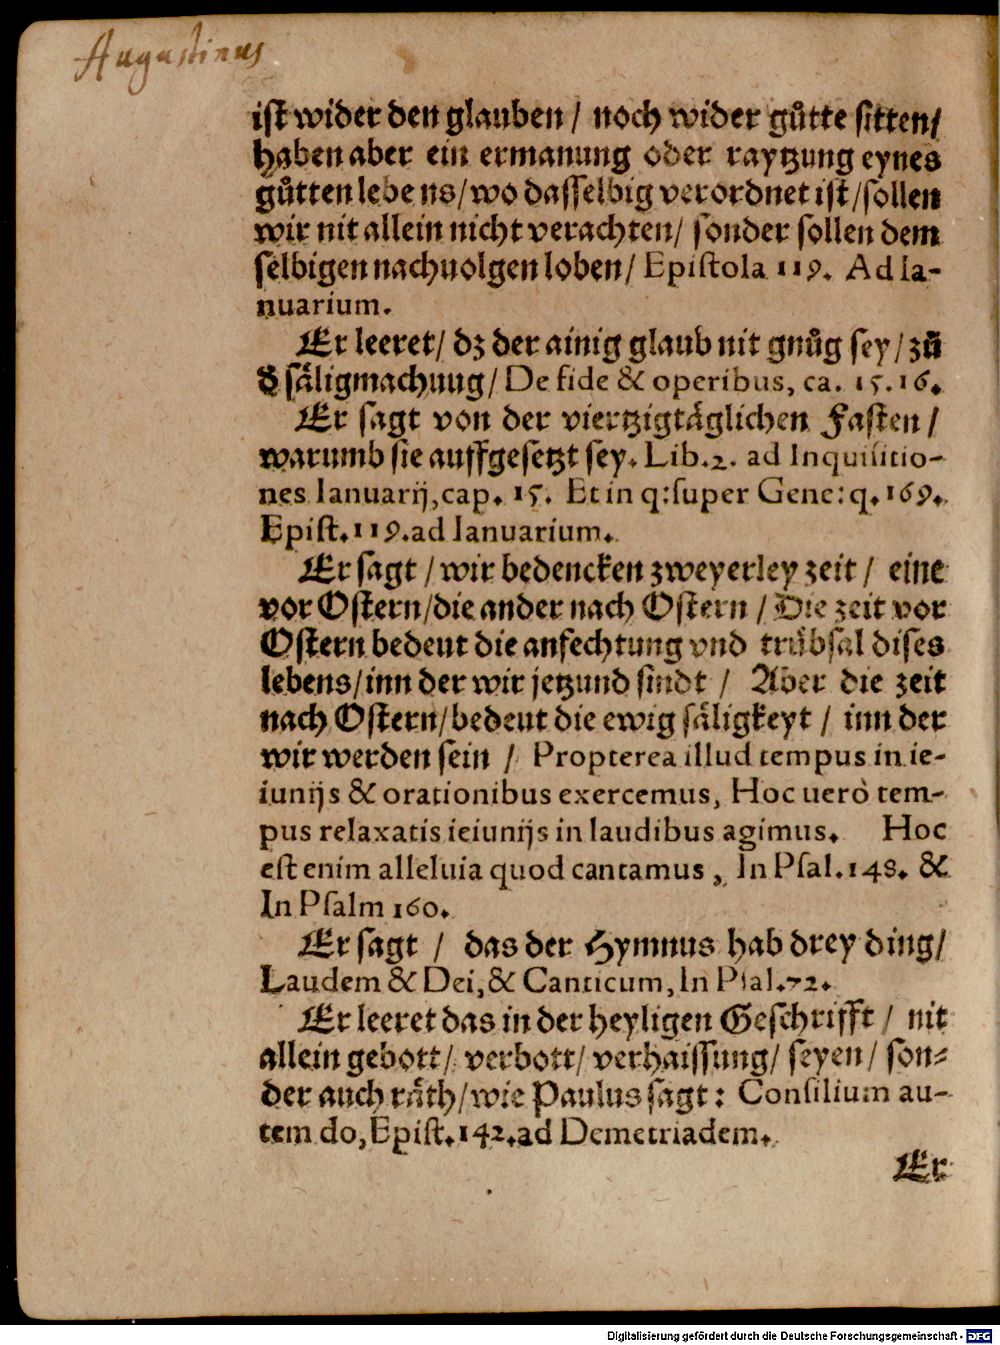 Augustinus
ist wider den glauben / noch wider gůtte sitten/
haben aber ein ermanung oder raytzung eynes
gůtten lebens/wo dasselbig verordnet ist/sollen
wir nit allein nicht verachten/ sonder sollen dem
selbigen nachuolgen loben/ Epistola 119. Ad Ia-
nuarium.
Er leeret/ dz der ainig glaub nit gnůg sey/ zů
d̕ säligmachung/ De fide & operibus, ca. 15.16.
Er sagt von der viertzigtäglichen Fasten/
warumb sie auffgesetzt sey. Lib.2. ad Inquisitio-
nes Ianuarij,cap. 15. Et in q:super Gene: q.169.
Epist.119.ad Ianuarium.
Er sagt / wir bedencken zweyerley zeit / eine
vor Ostern/die ander nach Ostern / Die zeit vor
Ostern bedeut die anfechtung vnd trübsal dises
lebens/inn der wir jetzund sindt / Aber die zeit
nach Ostern/bedeut die ewig säligkeyt / inn der
wir werden sein / Propterea illud tempus in ie-
iunijs & orationibus exercemus, Hoc uerò tem-
pus relaxatis ieiunijs in laudibus agimus. Hoc
est enim alleluia quod cantamus, In Psal.148. &
In Psalm 160.
Er sagt / das der Hymnus hab drey ding/
Laudem & Dei, & Canticum, In Psal.72.
Er leeret das in der heyligen Geschrifft / nit
allein gebott/ verbott/ verhaissung/ seyen/ son-
der auch räth/wie Paulus sagt: Consilium au-
tem do, Epist.142.ad Demetriadem.
Er
Digitalisierung gefördert durch die Deutsche Forschungsgemeinschaft - DFG